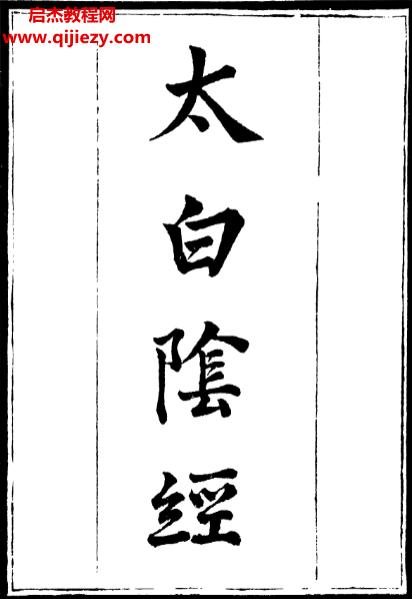 启杰教程网
www.qijiezy.com
太白陰經